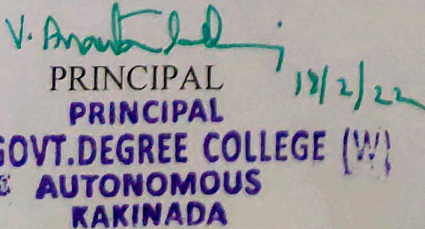 V.
PRINCIPAL
18/2/22
PRINCIPAL
GOVT.DEGREE COLLEGE (W)
AUTONOMOUS
KAKINADA